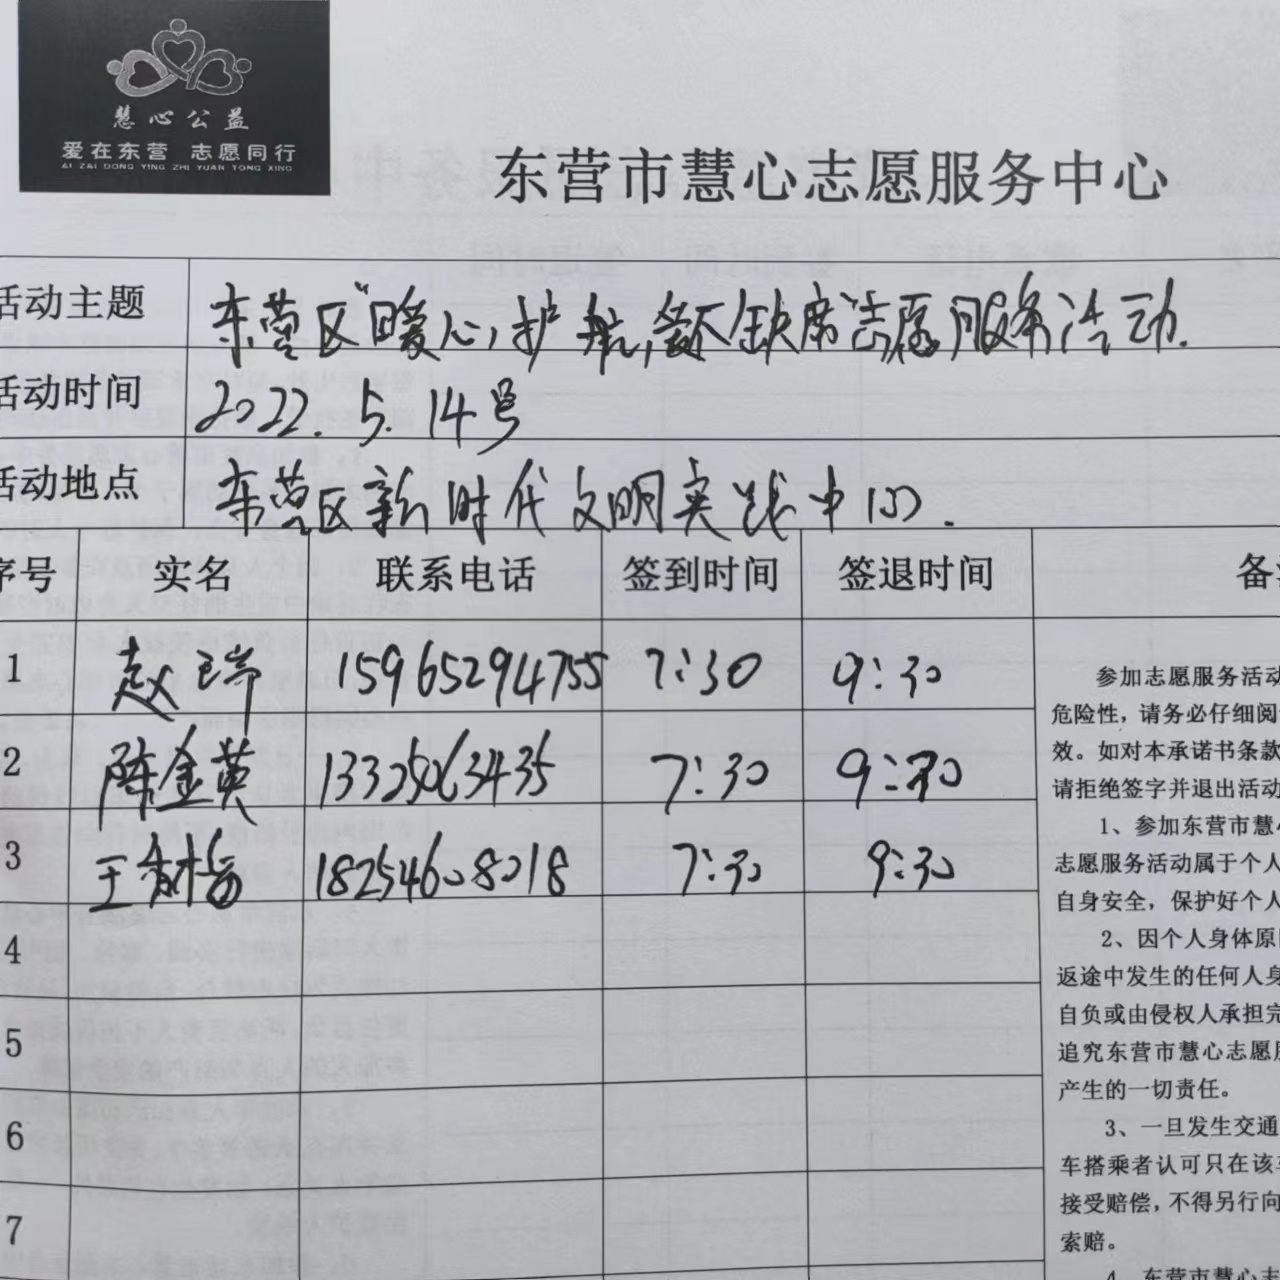 慧心公益
爱在东营 志愿同行
AI ZAI DONG YING ZHI YUAN TONG XING
东营市慧心志愿服务中心
活动主题 东营区“暖心护航,爱不缺席”志愿服务活动.
活动时间 2022.5.14号
活动地点 东营区新时代文明实践中心.
序号 实名 联系电话 签到时间 签退时间 备
1 赵瑞 15965294755 7:30 9:30
2 陈金英 13325063435 7:30 9:30
3 王 18254608018 7:30 9:30
4
5
6
7
参加志愿服务活动
危险性，请务必仔细阅
效。如对本承诺书条款
请拒绝签字并退出活动
1、参加东营市慧
志愿服务活动属于个人
自身安全，保护好个人
2、因个人身体原
返途中发生的任何人身
自负或由侵权人承担完
追究东营市慧心志愿
产生的一切责任。
3、一旦发生交通
车搭乘者认可只在该
接受赔偿，不得另行向
索赔。
4、东营市慧心志